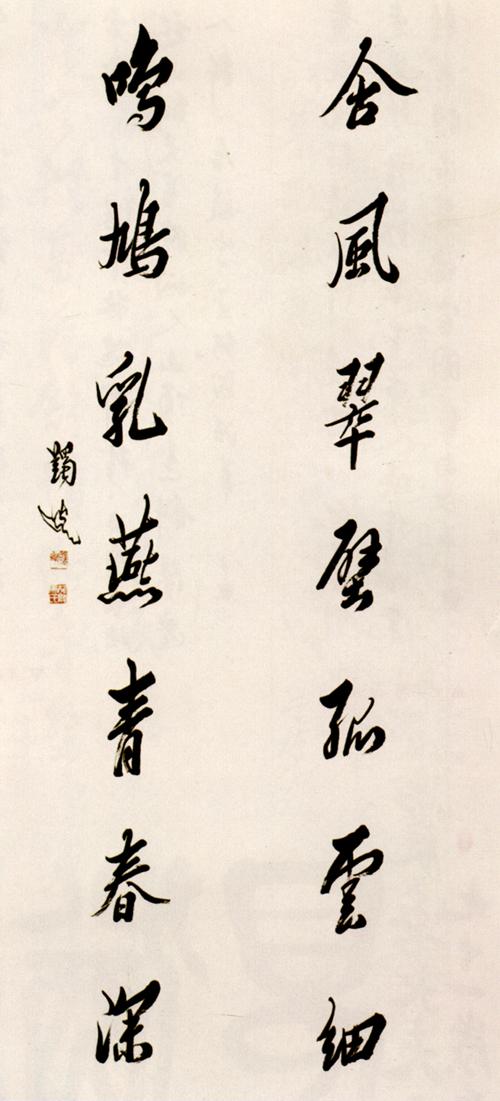 含風翠壁孤雲細
鳴鳩乳燕青春深
蠲叟